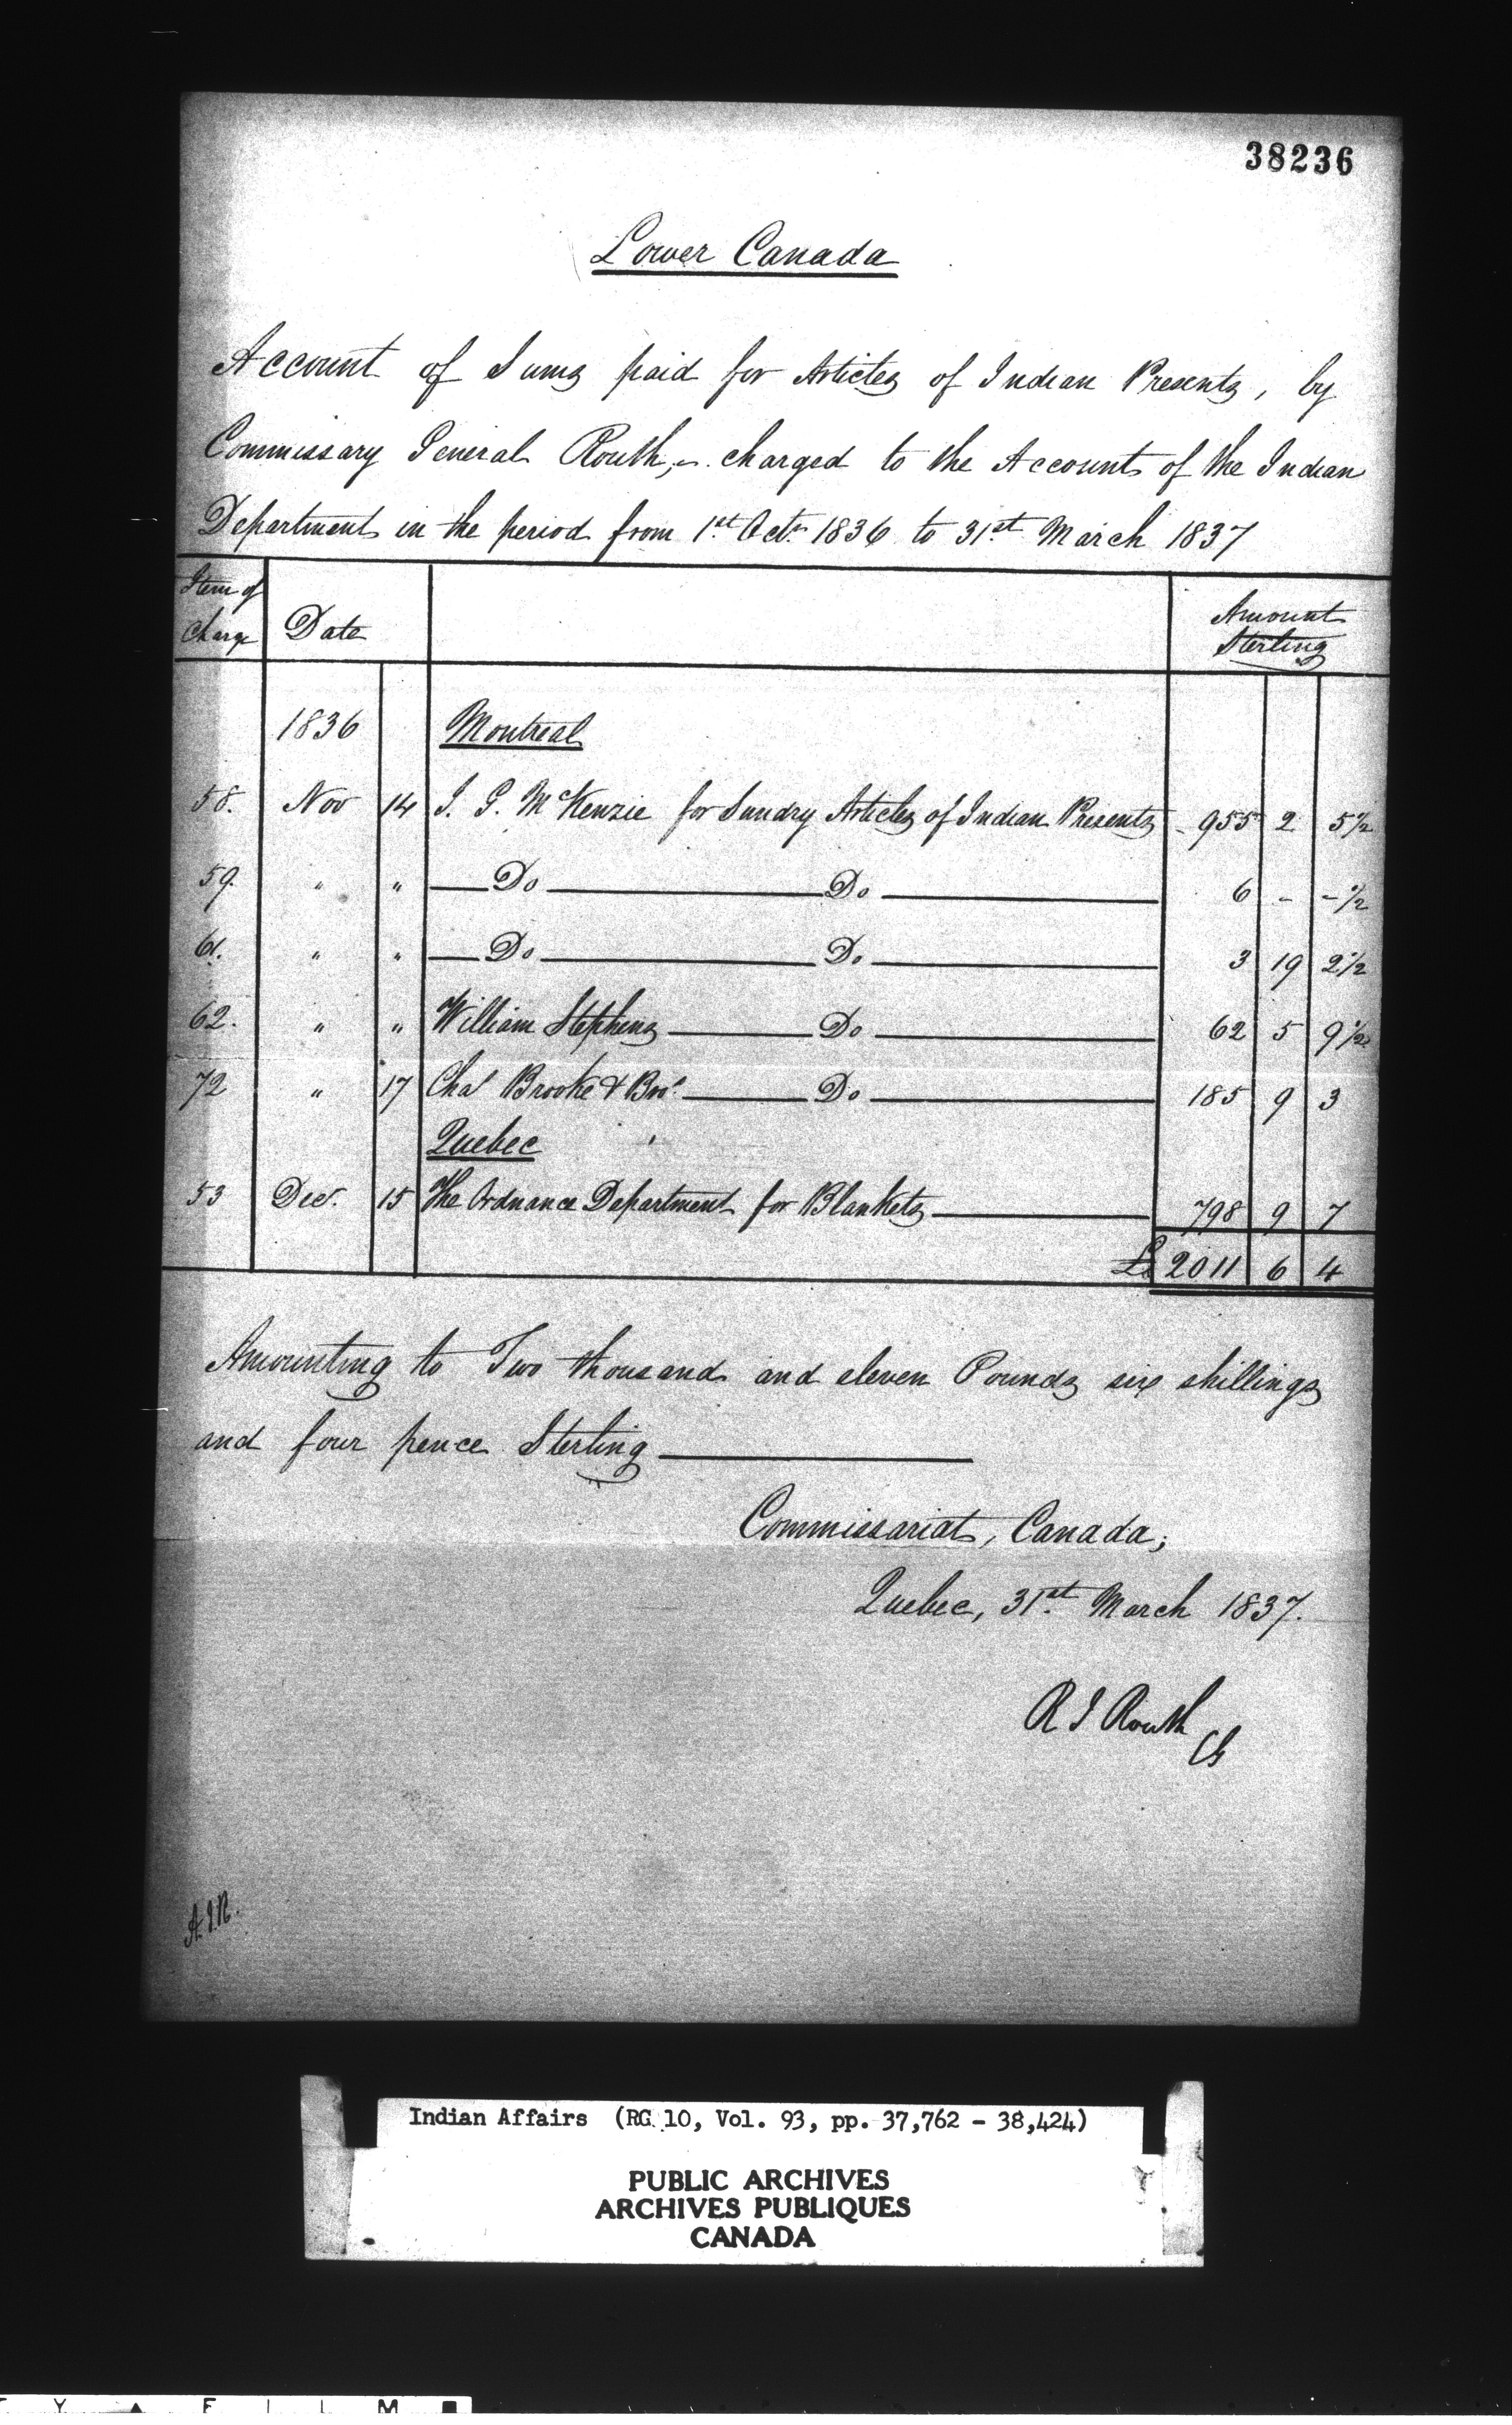 38236
Lower Canada
Account of Sums paid for Articles of Indian Presents, by
Commissary General Routh, charged to the Accounts of the Indian
Department in the period from 1st Octr 1836 to 31st March 1837
Item of Charge Date Amount Sterling
1836 Montreal
58. Nov 14 J. G. McKenzie for Sundry Articles of Indian Presents 955 2 5½
59. " " Do Do 6 - - ½
61. " " Do Do 3 19 2½
62. " " William Stephens Do 62 5 9½
72 " 17 Chas Brooke & Bros. Do 185 9 3
Quebec
53 Decr. 15 The Ordnance Department for Blankets 798 9 7
£ 2011 6 4
Amounting to Two thousand and eleven Pounds six shillings
and four pence Sterling
Commissariat, Canada;
Quebec, 31st March 1837.
R I Routh
CG
A.I.R.
Indian Affairs (RG 10, Vol. 93, pp. 37,762 - 38,424)
PUBLIC ARCHIVES
ARCHIVES PUBLIQUES
CANADA